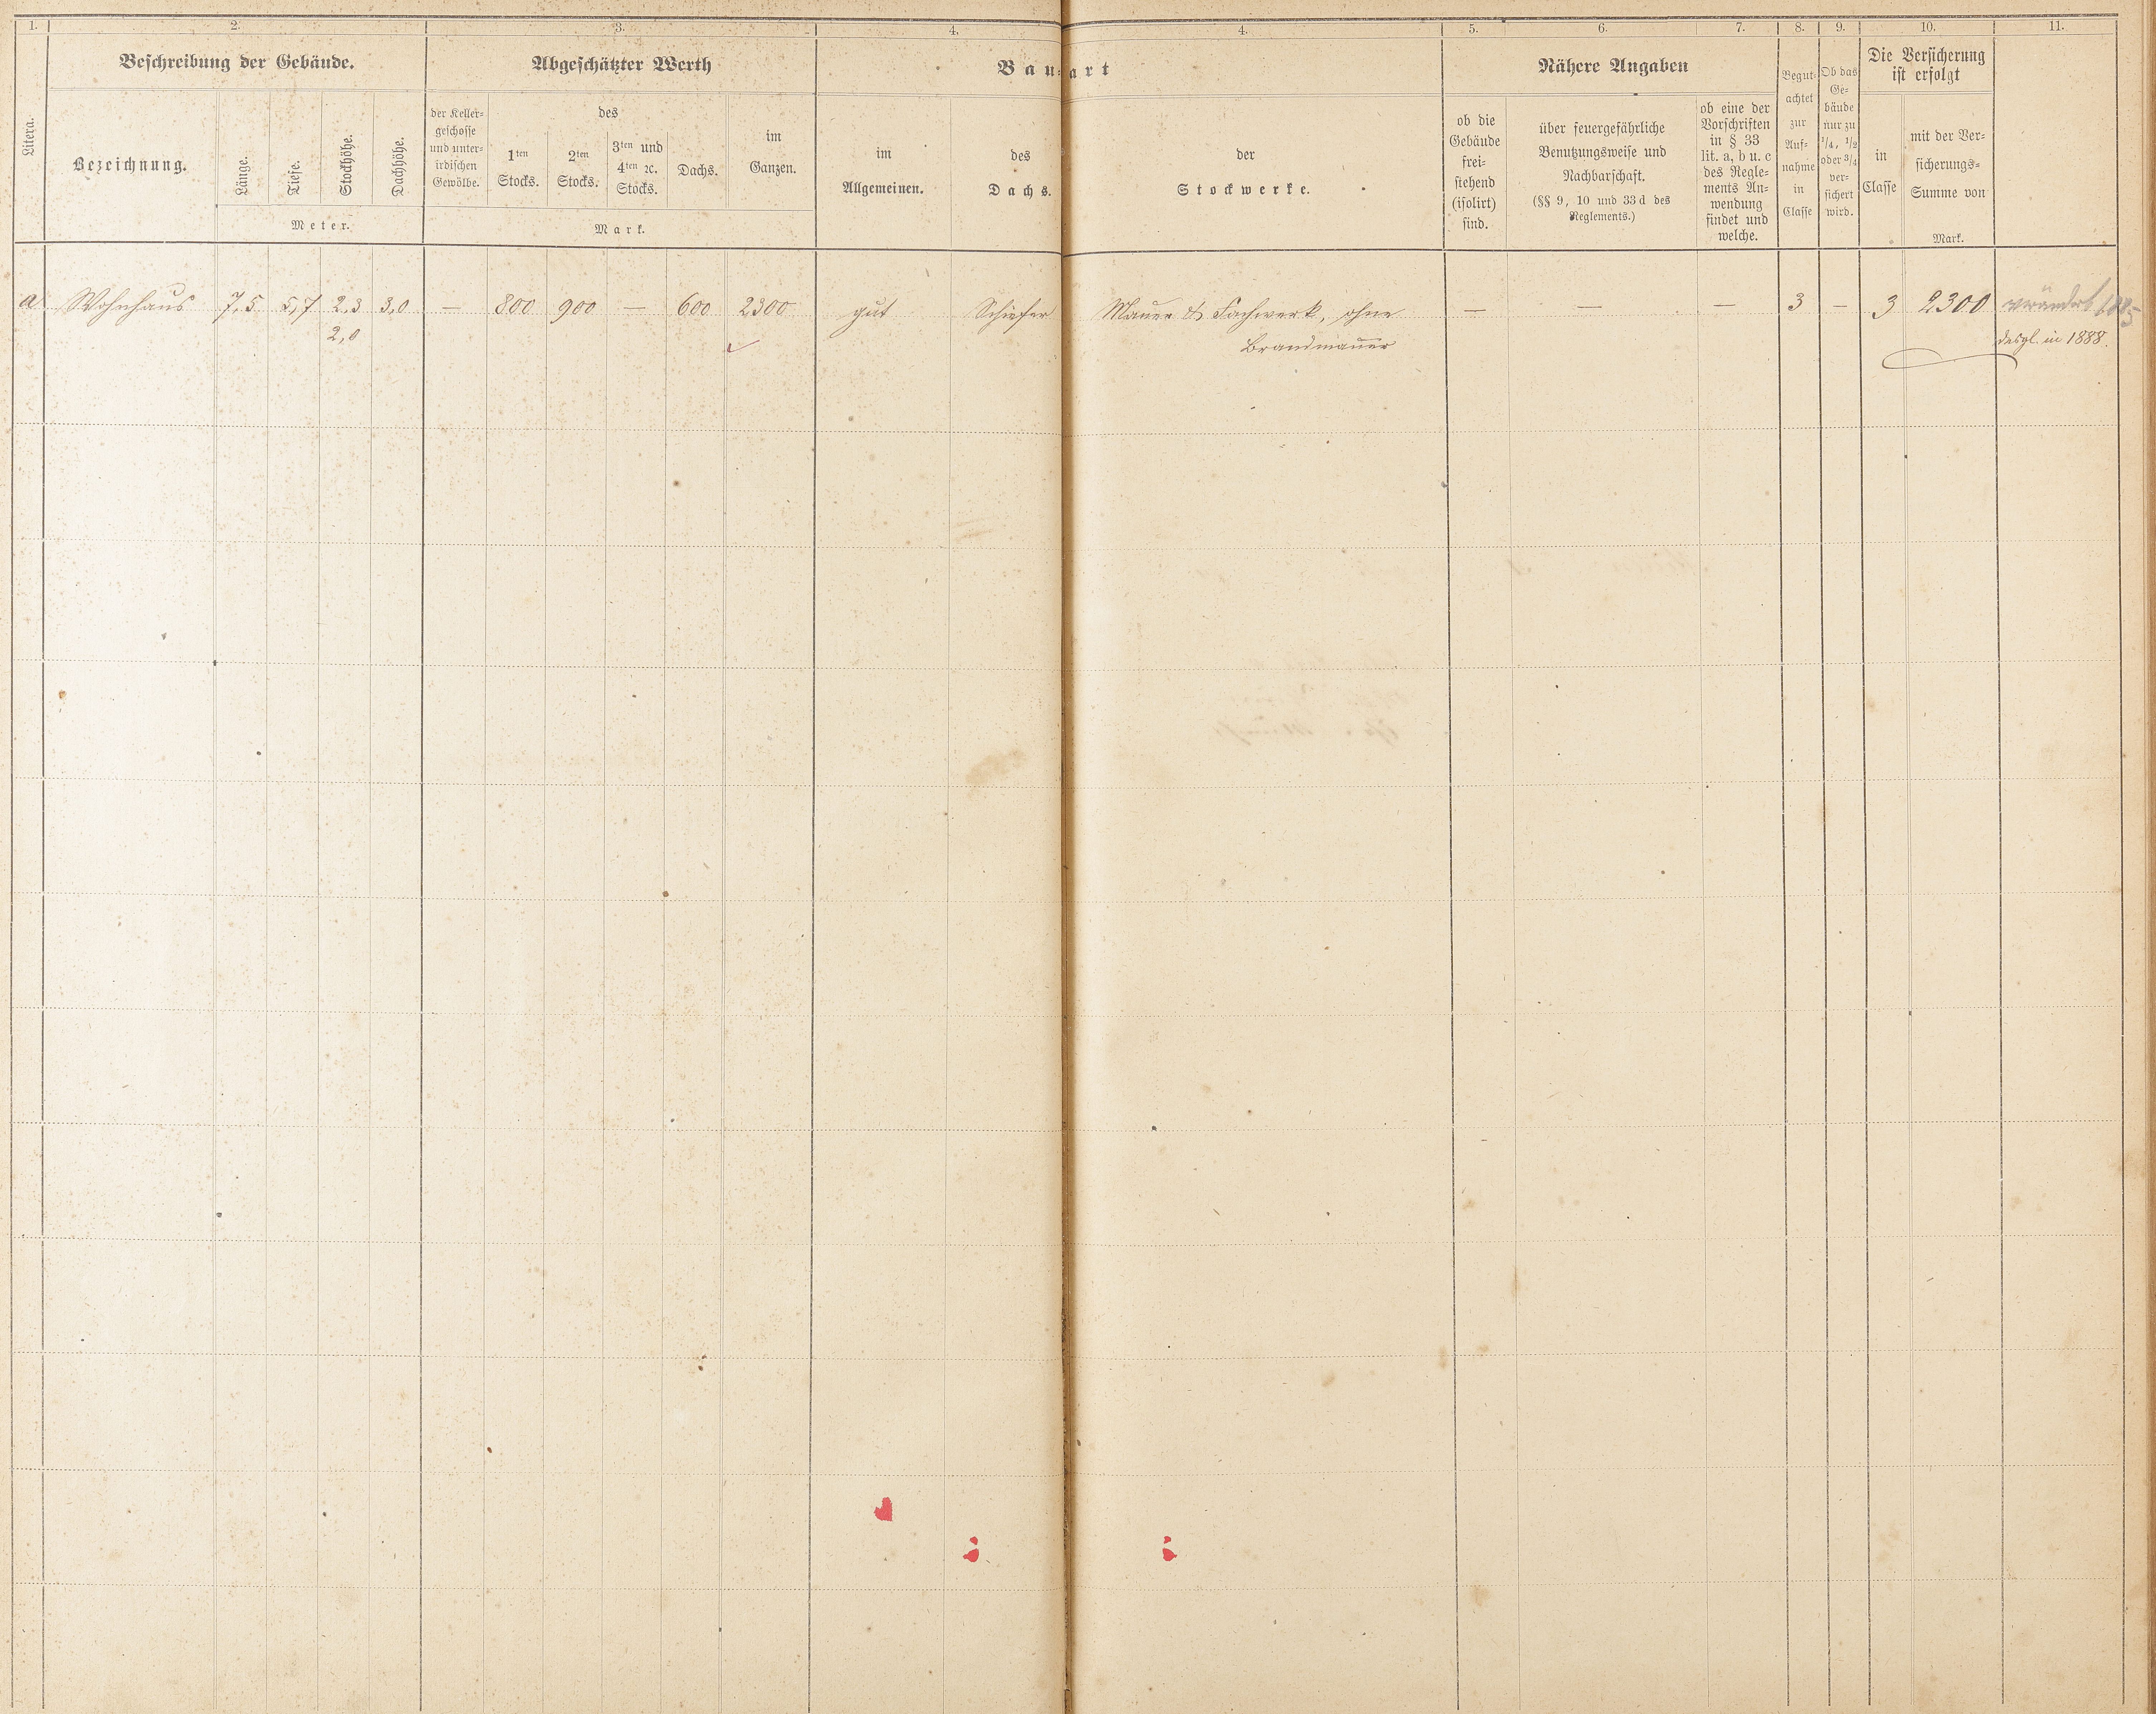 1. 2. 3. 4. 4. 5. 6. 7. 8. 9. 10. 11.
Beschreibung der Gebäude. Abgeschätzter Werth Bau-art Nähere Angaben
Litera.
Bezeichnung.
Länge.
Tiefe.
Stockhöhe.
Dachhöhe.
Meter.
der Keller-
geschosse
und unter-
irdischen
Gewölbe.
des
1ten
Stocks.
2ten
Stocks.
3ten und
4ten ꝛc.
Stocks.
Dachs.
im
Ganzen.
Mark.
im
Allgemeinen.
des
Dachs.
der
Stockwerke.
ob die
Gebäude
frei-
stehend
(isolirt)
sind.
über feuergefährliche
Benutzungsweise und
Nachbarschaft.
(§§ 9, 10 und 33 d des
Reglements.)
ob eine der
Vorschriften
in § 33
lit. a, b u. c
des Regle-
ments An-
wendung
findet und
welche.
Begut-
achtet
zur
Auf-
nahme
in
Classe
Ob das
Ge-
bäude
nur zu
1/4, 1/2
oder 3/4
ver-
sichert
wird.
Die Versicherung
ist erfolgt
in
Classe
mit der Ver-
sicherungs-
Summe von
Mark.
a Wohnhaus 7,5 5,7 2,3 3,0 — 800 900 — 600 2300 gut Schiefer Mauer & Fachwerk, ohne — — — 3 — 3 2300 verändert 1885
2,0 Brandmauer desgl. in 1888.